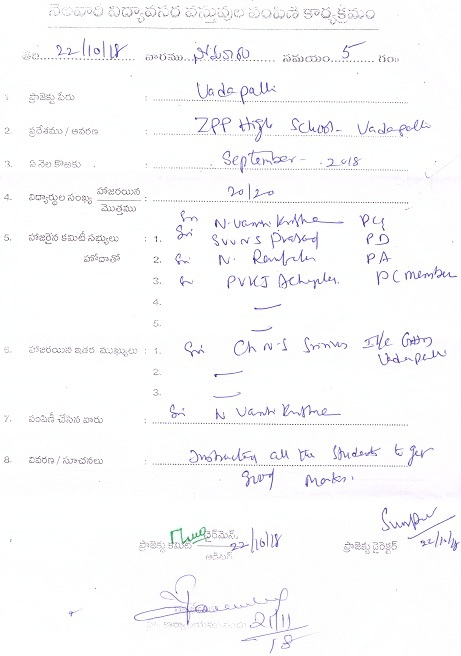 నెలవారీ విద్యావసర వస్తువుల పంపిణీ కార్యక్రమం
తేది 22/10/18 వారము సోమవారం సమయం 5 గం॥
1. ప్రాజెక్టు పేరు : Vadapalli
2. ప్రదేశము / ఆవరణ : ZPP High School- Vadapalli
3. ఏ నెల కొఱకు : September - 2018
4. విద్యార్థుల సంఖ్య హాజరయిన / మొత్తము : 20/20
Sri N. Vamsi Krishna PC
5. హాజరైన కమిటీ సభ్యులు హోదాతో : 1. Sri SVVNS Prasad PD
2. Sri N. PA
3. Sri PVKJ PC member
4. —
5. —
6. హాజరయిన ఇతర ముఖ్యులు : 1. Sri Ch N.S Srinivas I/c
Vadapalli
2. —
3. —
7. పంపిణీ చేసిన వారు : Sri N Vamsi Krishna
8. వివరణ / సూచనలు : Instructing all the students to get
good marks.
ప్రాజెక్టు కమిటీ ఛైర్మెన్, 22/10/18
ఆడిటర్
ప్రాజెక్టు డైరెక్టర్ 22/10/18
21/11
18